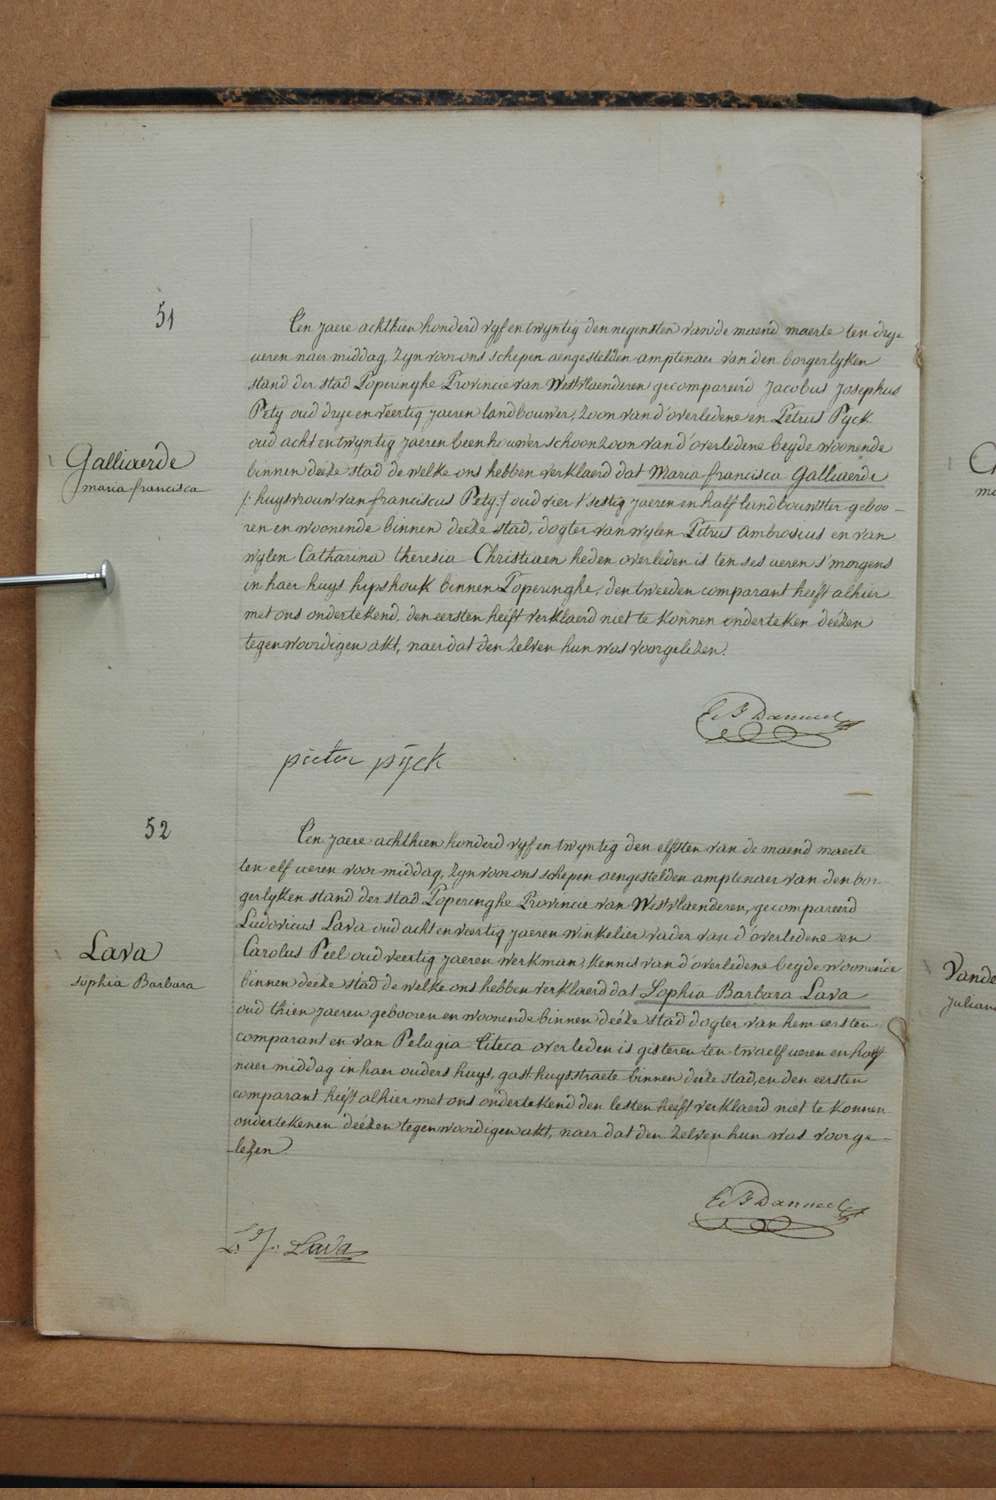 51
Een jaere achthien honderd vyf en twyntig den negensten van de maend maerte ten drye
ueren naer middag, zyn voor ons schepen aengestelden amptenaer van den borgerlyken
stand der stad Poperinghe Provincie van Westvlaenderen gecompareerd Jacobus Josephus
Pety oud drye en veertig jaeren landbouwer, zoon van d'overledene en Petrus Pyck
oud acht en twyntig jaeren beenhouwer schoonzoon van d'overledene beyde woonende
binnen deeze stad de welke ons hebben verklaerd dat Maria francisca Galliaerde
Galliaerde
maria francisca
/: huysvrouw van franciscus Pety :/ oud vier t'sestig jaeren en half landbouwster geboo-
ren en woonende binnen deeze stad, dogter van wylen Petrus Ambrosius en van
wylen Catharina theresia Christiaen heden overleden is ten ses ueren s'morgens
in haer huys hipshouk binnen Poperinghe, den tweeden comparant heeft alhier
met ons ondertekend, den eersten heeft verklaerd niet te konnen onderteken deézen
tegenwoordigen akt, naer dat den zelven hun was voorgelezen.
pieter pijck
52
Een jaere achthien honderd vyf en twyntig den elfsten van de maend maerte
ten elf ueren voor middag, zyn voor ons schepen aengestelden amptenaer van den bor-
gerlyken stand der stad Poperinghe Provincie van Westvlaenderen, gecompareerd
Ludovicus Lava oud acht en veertig jaeren winkelier vader van d'overledene en
Carolus Peel oud veertig jaeren werkman, kennis van d'overledene beyde woonende
Lava
sophia Barbara
binnen deeze stad de welke ons hebben verklaerd dat Sophia Barbara Lava
oud thien jaeren gebooren en woonende binnen deéze stad dogter van hem eersten
comparant en van Pelagia overleden is gisteren ten twaelf ueren en half
naer middag in haer ouders huys, gasthuysstraete binnen deeze stad, en den eersten
comparant heeft alhier met ons ondertekend den lesten heeft verklaerd niet te konnen
ondertekenen deézen tegenwoordigen akt, naer dat den zelven hun was voorge-
lezen
Lava
Vande